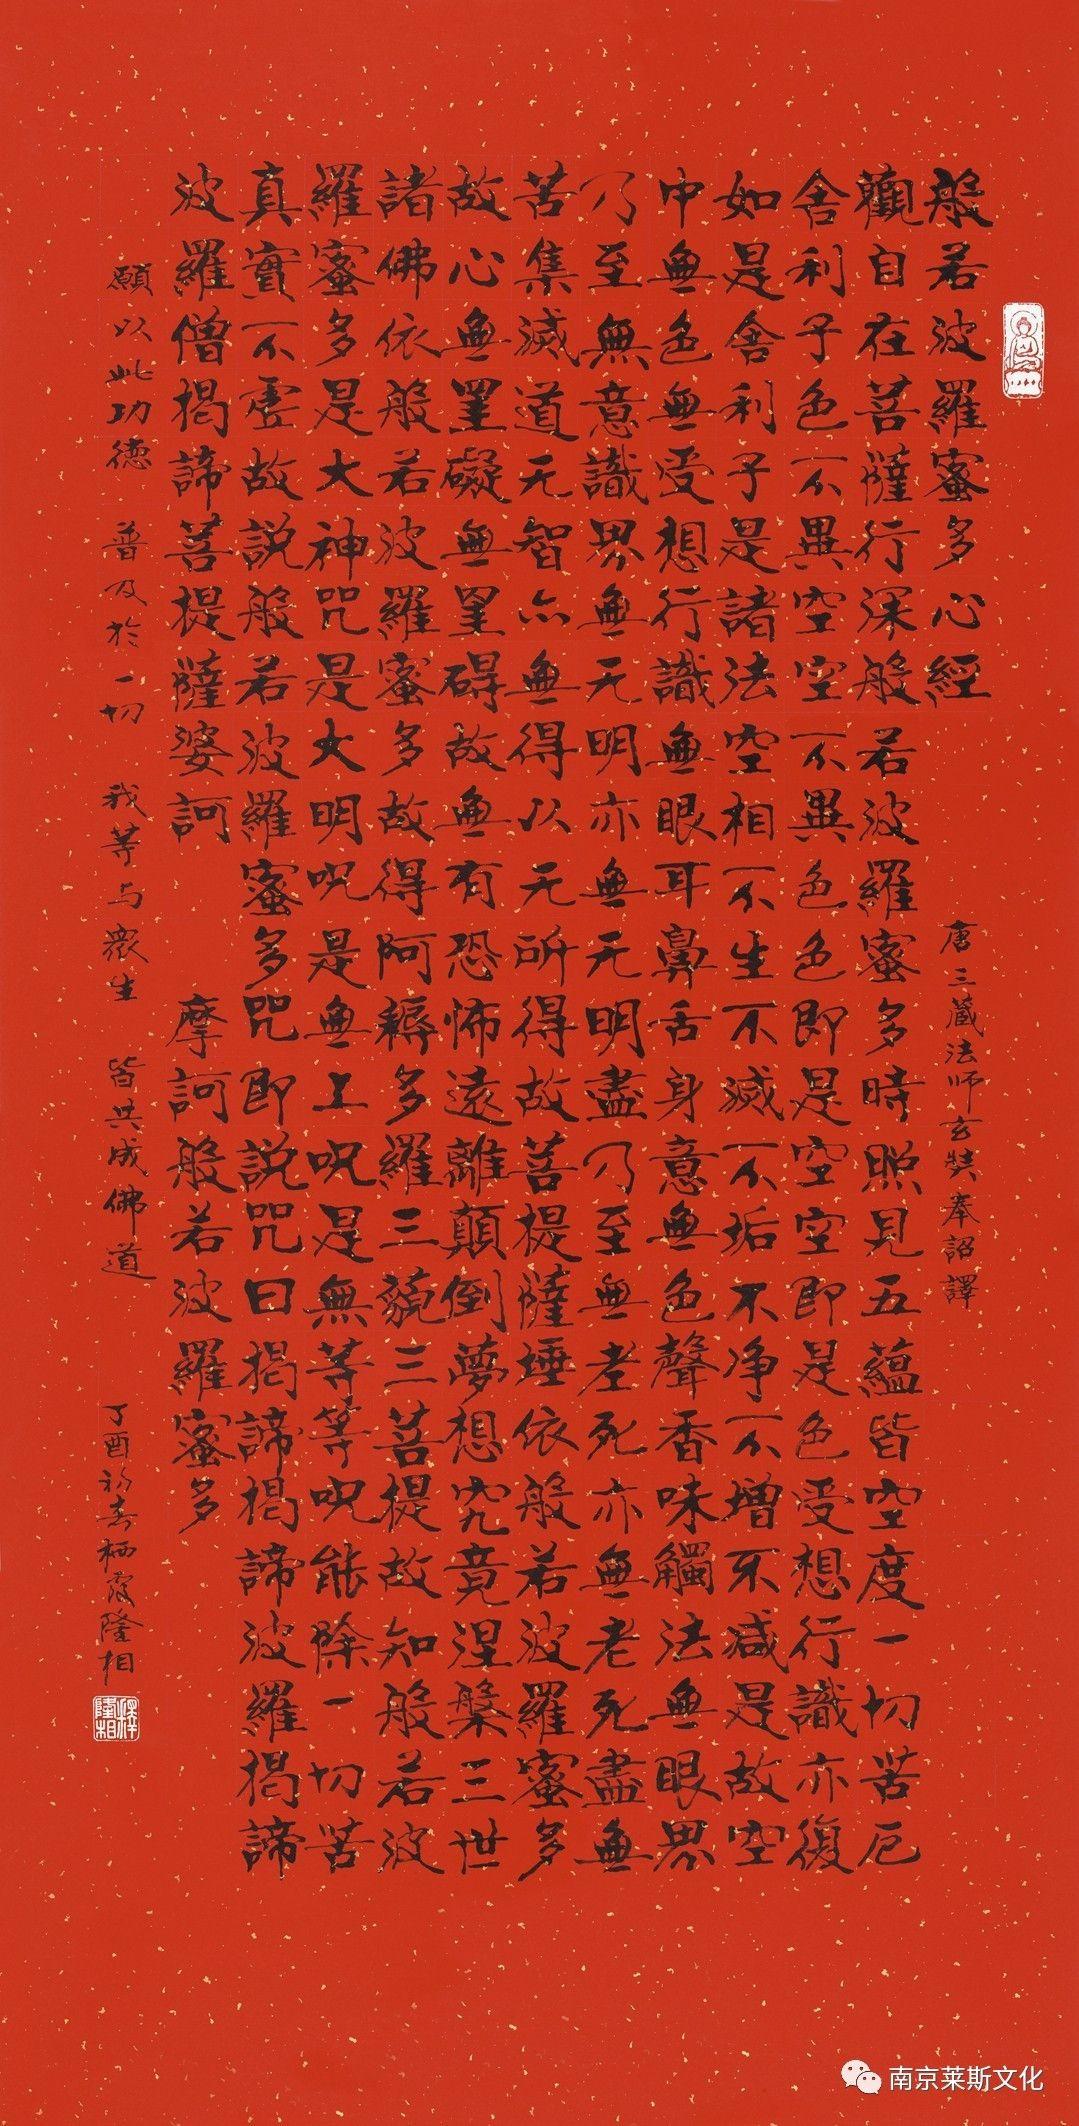 般若波羅蜜多心經
唐三藏法师玄奘奉詔譯
觀自在菩薩行深般若波羅蜜多時照見五蘊皆空度一切苦厄
舍利子色不異空空不異色色即是空空即是色受想行識亦復
如是舍利子是諸法空相不生不滅不垢不净不增不减是故空
中無色無受想行識無眼耳鼻舌身意無色聲香味觸法無眼界
乃至無意識界無无明亦無无明盡乃至無老死亦無老死盡無
苦集滅道无智亦無得以无所得故菩提薩埵依般若波羅蜜多
故心無罣礙無罣碍故無有恐怖遠離顛倒夢想究竟涅槃三世
諸佛依般若波羅蜜多故得阿耨多羅三藐三菩提故知般若波
羅蜜多是大神咒是大明呪是無上呪是無等等呪能除一切苦
真實不虛故説般若波羅蜜多咒即説咒曰揭諦揭諦波羅揭諦
波羅僧揭諦菩提薩婆訶 摩訶般若波羅蜜多
願以此功德 普及於一切 我等与衆生 皆共成佛道
丁酉初春栖霞隆相
南京莱斯文化